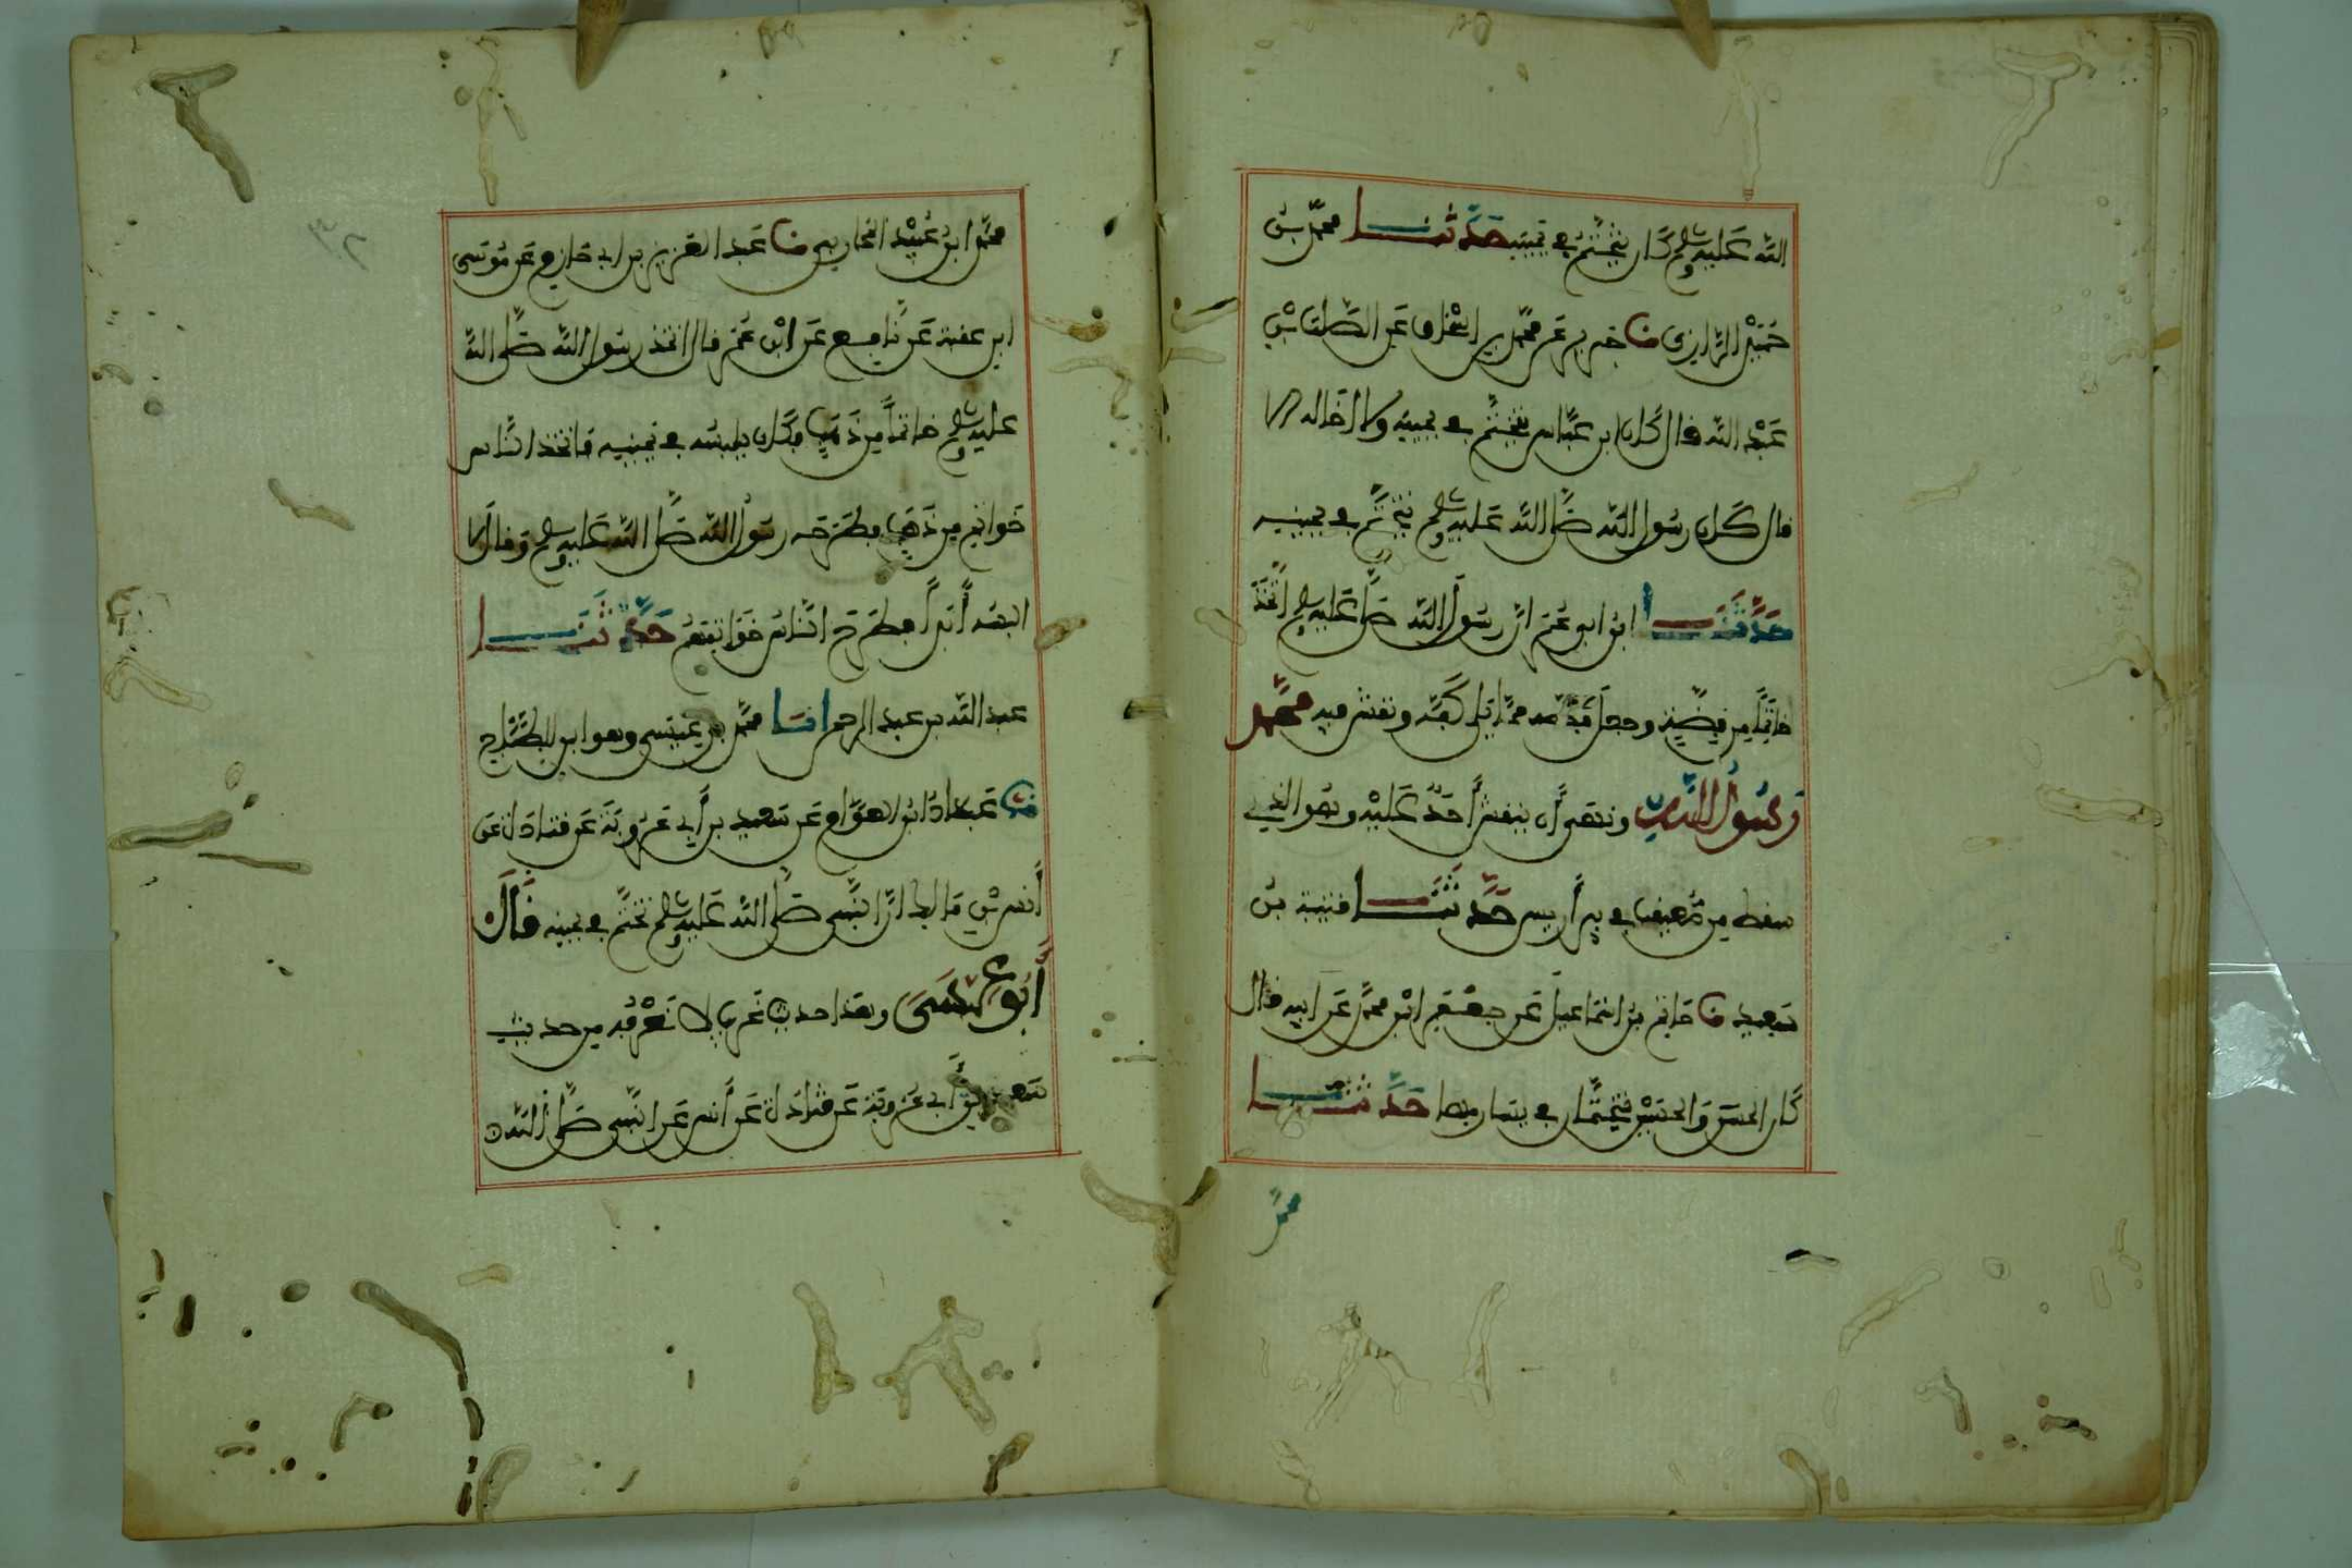 الله عليه وسلم كان يتختم في يمينه حدثنا محمد بن
حميد الرازي نا جرير عن محمد بن إسحاق عن الصلت بن
عبد الله قال كان ابن عباس يتختم في يمينه ولا إخاله إلا
قال كان رسول الله صلى الله عليه وسلم يتختم في يمينه
حدثنا ابن أبي عمر أن رسول الله صلى عليه وسلم اتخذ
خاتما من فضة وجعل فصه مما يلي كفه ونقش فيه محمد
رسول الله ونهى أن ينقش أحد عليه وهو الذي
سقط من معيقيب في بير أريس حدثنا قتيبة بن
سعيد نا حاتم بن إسماعيل عن جعفر ابن محمد عن أبيه قال
كان الحسن والحسين يتختمان في يسارهما حدثنا
محمد
٣٢
محمد ابن عبيد المحاربي نا عبد العزيز بن أبي حازم عن موسى
ابن عقبة عن نافع عن ابن عمر قال اتخذ رسول الله صلى الله
عليه وسلم خاتما من ذهب فكان يلبسه في يمينه فاتخذ الناس
خواتم من ذهب فطرحه رسول الله صلى الله عليه وسلم وقال لا
البسه أبدا فطرح الناس خواتمهم حدثنا
عبد الله بن عبد الرحمن انا محمد بن عيسى وهو ابن الطباع
نا عباد ابن العوام عن سعيد بن أبي عروبة عن قتادة عن
أنس بن مالك أن النبي صلى الله عليه وسلم تختم في يمينه قال
أبو عيسى وهذا حديث غريب لا نعرفه من حديث
سعيد بن أبي عروبة عن قتادة عن أنس عن النبي صلى الله